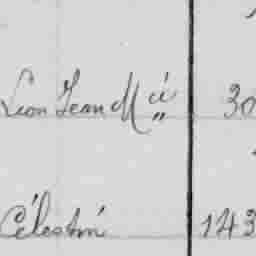 Léon Jean M ié " 30
Célestin 143